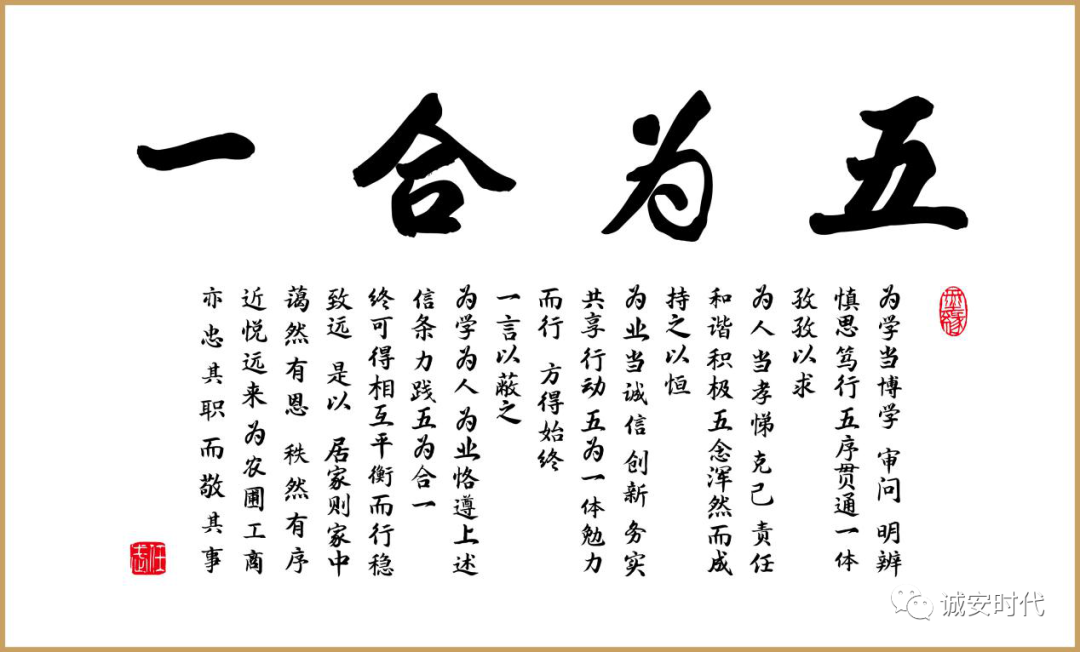 五为合一
为学当博学 审问 明辨
慎思笃行五序贯通一体
孜孜以求
为人当孝悌 克己 责任
和谐积极五念浑然而成
持之以恒
为业当诚信创新 务实
共享行动 五为一体勉力
而行 方得始终
一言以蔽之
为学为人 为业恪遵上述
信条力践五为合一
终可得相互平衡而行稳
致远 是以 居家则家中
蔼然有恩 秩然有序
近悦远来 为农圃工商
亦忠其职而敬其事
诚安时代